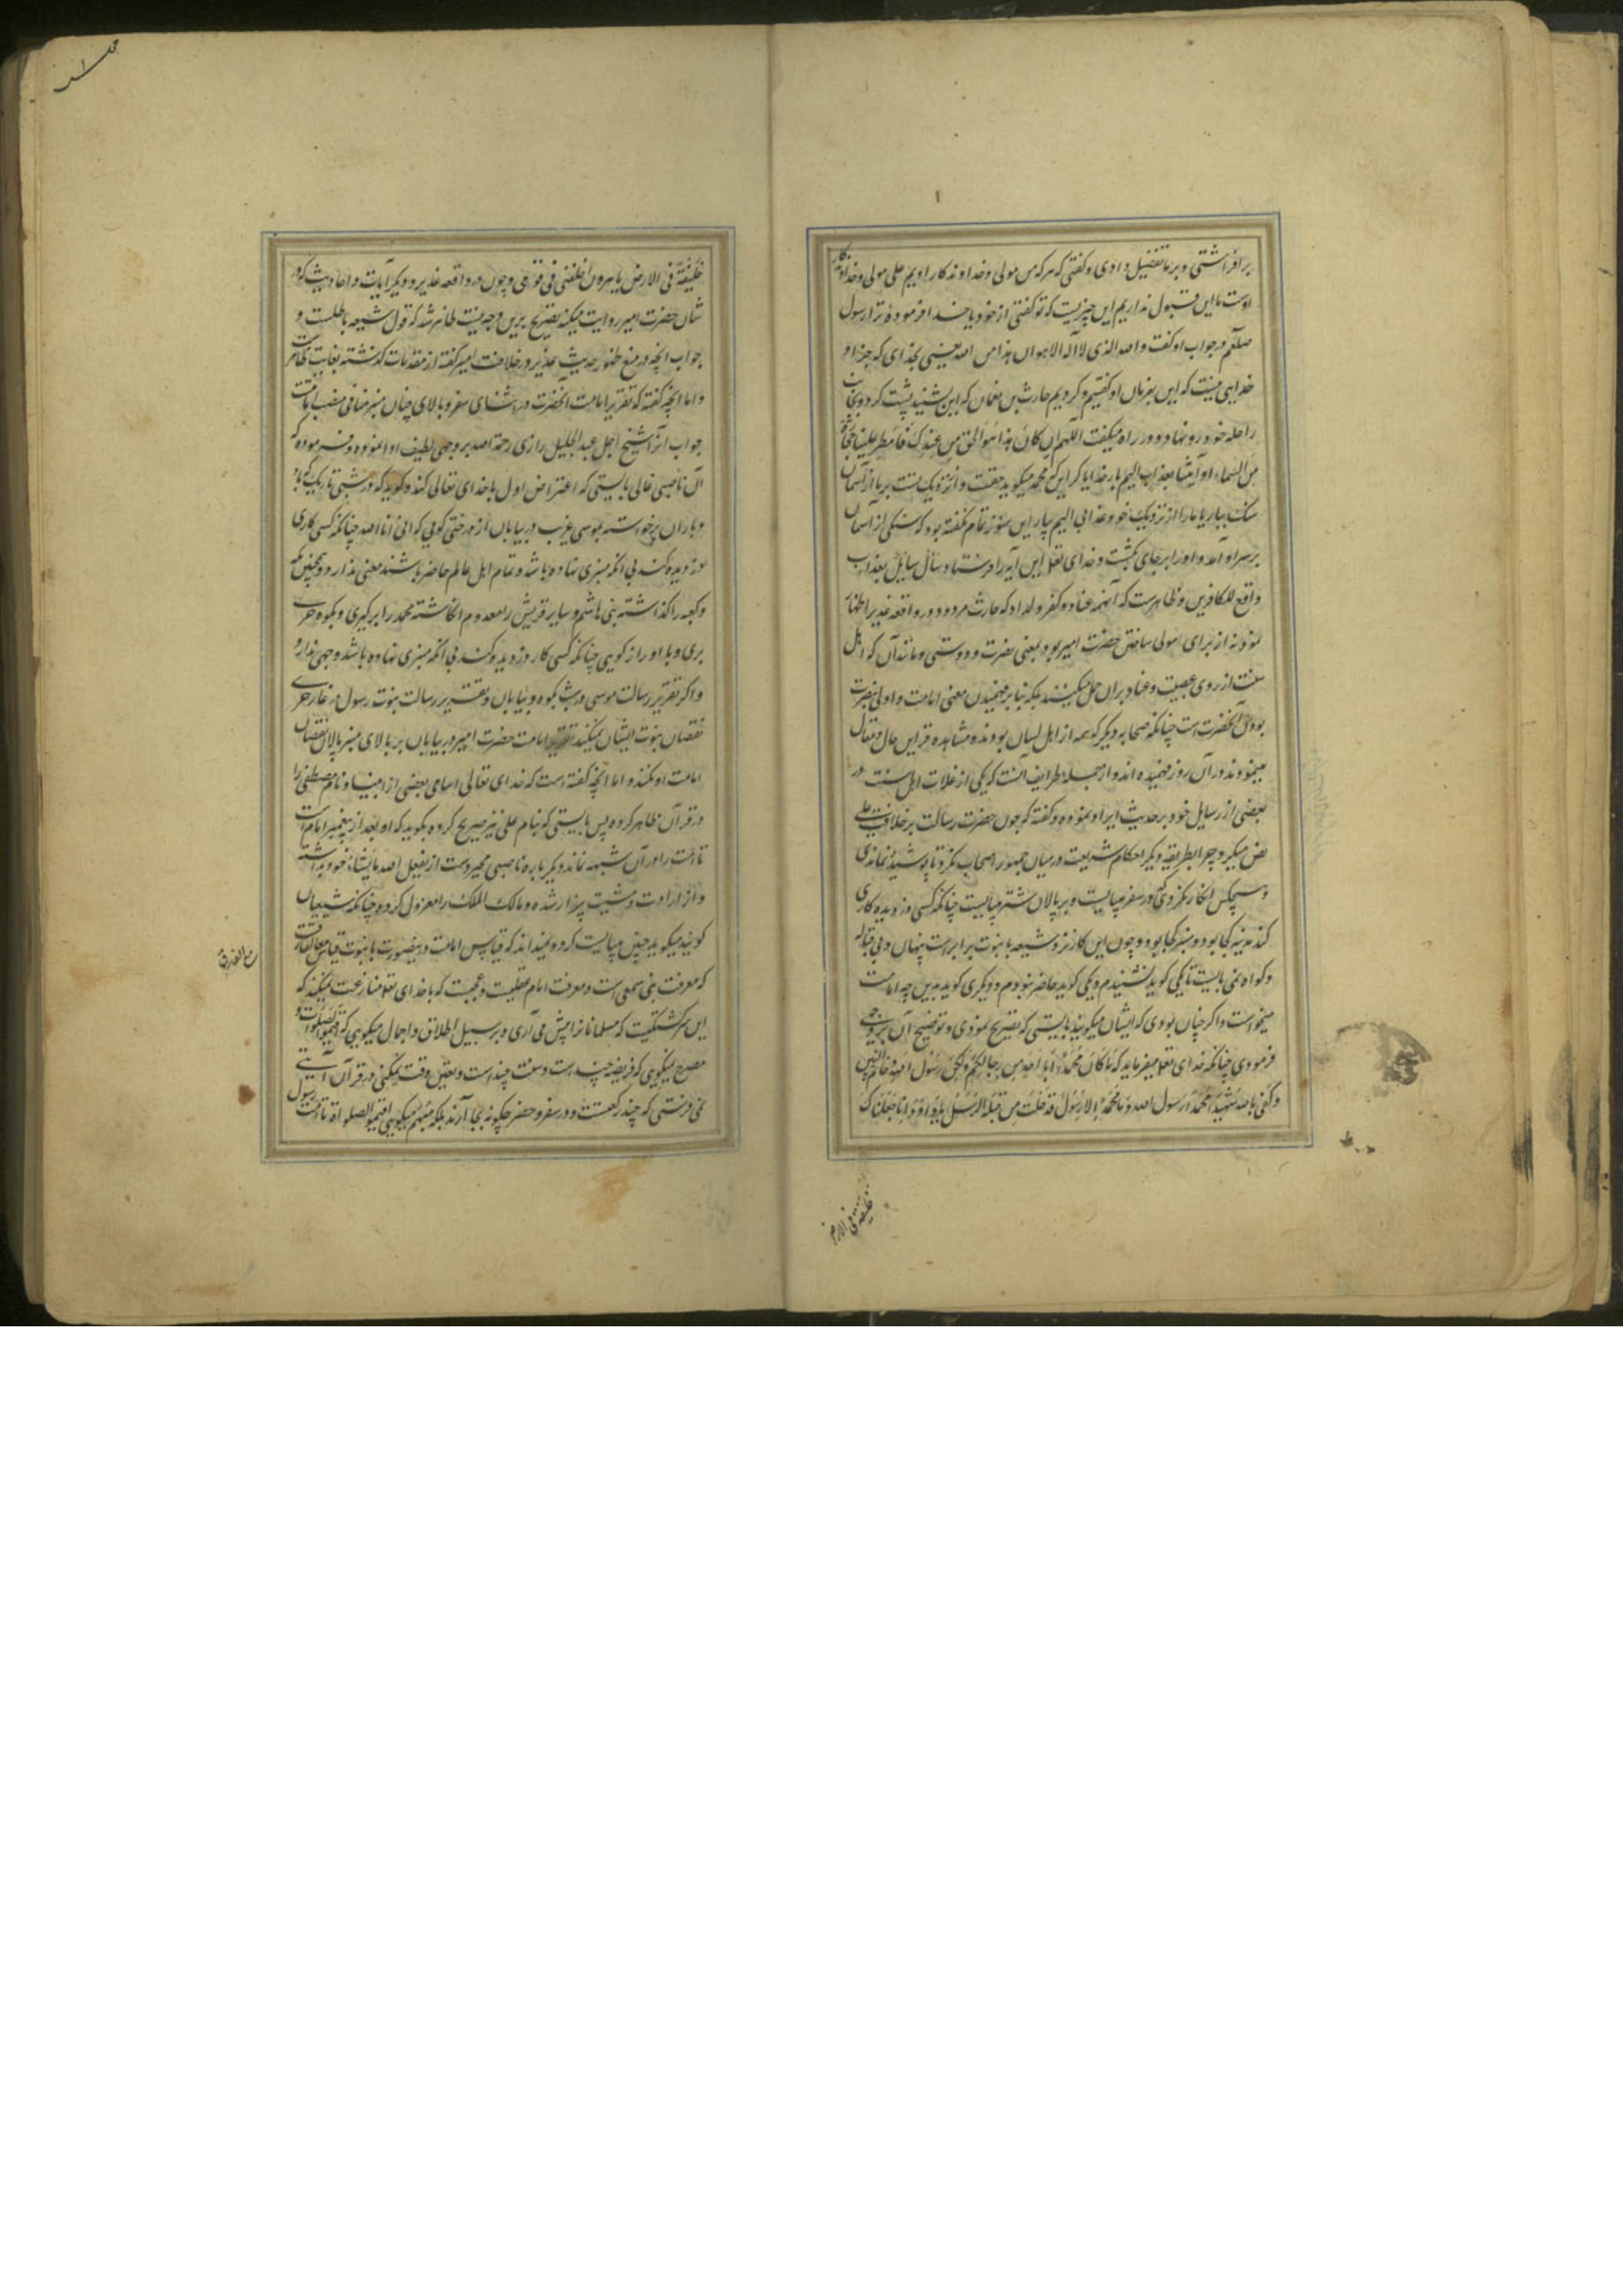 برافراشتی و بر ما تفضیل دادی و گفتی که هر که من مولی و خداوندکار اویم علی مولی و خداوندکار
اوست ما این قبول نداریم این چیزیست که تو گفتی از خود یا خدا فرموده ترا رسول
صلعم در جواب او گفت والله الذی لا اله الا هو ان هذا من الله یعنی بخدای که جز او
خدایی نیست که این بفرمان او گفتیم و کردیم حارث بن نعمان که این بشنید پشت کرد و بجانب
راحله خود رو نهاد و در راه میگفت اللهم ان کان هذا هو الحق من عندک فامطر علینا حجارة
من السماء او آیتنا بعذاب الیم بار خدایا گر این که محمد میگوید حقست و از نزدیک تست بر ما از آسمان
سنک ببار یا بیار از نزدیک خود عذابی الیم پس این هنوز تمام نگفته بود که سنگی از آسمان
بر سر او آمد و او را بر جای بکشت و خدای تعالی این آیه را فرستاد سأل سایل بعذاب
واقع للکافرین و ظاهرست که آنهمه عناد و کفر ولداد که حارث مردود در واقعه غدیر اظهار
نمود نه از برای مولی ساختن حضرت امیر بود بمعنی نصرت و دوستی و مانند آن که اهل
سنت از روی عصبیت و عناد بران حمل میکنند بلکه بنابر فهمیدن معنی امامت و اولی بتصرف
بودن آنحضرت است چنانکه صحابه دیگر که همه از اهل لسان بودند و مشاهده قراین حال و مقال
مینمودند در آن روز فهمیده اند و از جمله طرایف آنست که یکی از غلات اهل سنت در
بعضی از رسایل خود بر حدیث ایراد نموده و گفته که چون حضرت رسالت بر خلافت علی
نص میکرد چرا بطریقه دیگر احکام شریعت در میان جمهور اصحاب نکرد تا پوشیده نماندی
و هیچکس انکار نکردی که در سفر میبایست و بر پالان شتر میبایست چنانکه کسی دزدیده کاری
کند مدینه کجا بود و منبر کجا بود و چون این کار نزد شیعه با نبوت برابرست پنهان و بی قباله
و گواه نمی بایست تا یکی گوید نشنیدم و یکی گوید حاضر نبودم و دیگری گوید بدین چه امامت
میخواست و اگر چنان بودی که ایشان میگویند بایستی که تصریح نمودی و توضیح آن بر وجهی
فرمودی چنانکه خدای تعالی میفرماید که ما کان محمد ابا احد من رجالکم ولکن رسول الله و خاتم النبیین
و کفی بالله شهیدا محمد رسول الله و ما محمد الا رسول قد خلت من قبله الرسل یا داود انا جعلناک
خلیفة فی الارض
خلیفة فی الارض یا هرون اخلفنی فی قومی و چون در واقعه غدیر و دیگر آیات و احادیث که در
شان حضرت امیر روایت میکنند تصریح برین وجه نیست ظاهر شد که قول شیعه باطلست و
جواب آنچه در منع ظهور حدیث غدیر در خلافت امیر گفته از مقدمات گذشته بغایت ظاهرست
و اما آنچه گفته که تقریر امامت آنحضرت در اثنای سفر و بالای چنان منبر منافی منصب امامت
جواب آنرا شیخ اجل عبد الجلیل رازی رحمة الله بر وجهی لطیف ادا نموده و فرموده که
آن ناصبی غالی بایستی که اعتراض اول با خدای تعالی کند و گوید که در شبی تاریک که باد
و باران برخواسته بموسی غریب در بیابان از درختی گویی که انی انا الله چنانکه کسی کاری
دزدیده کند بی آنکه منبری نهاده باشد و تمام اهل عالم حاضر باشند معنی ندارد و همچنین مکه
و کعبه را گذاشته بنی هاشم و سایر قریش را معدوم انگاشته محمد را برگیری و بکوه حری
بری و با او راز گویی چنانکه کسی کار دزدیده کند بی آنکه منبری نهاده باشد وجهی ندارد
و اگر تقریر رسالت موسی در شب بکوه و بیابان و تقریر رسالت نبوت رسول در غار حری
نقصان نبوت ایشان نمیکند تقریر امامت حضرت امیر در بیابان بر بالای منبر پالان نقصان
امامت او نکند و اما آنچه گفته است که خدای تعالی اسامی بعضی از انبیا و نام مصطفی را
در قرآن ظاهر کرده پس بایستی که بنام علی نیز صریح کرده بگوید که او بعد از پیغمبر امام است
تا امت را در آن شبهه نماند دیگر باره ناصبی مجبر دست از یفعل الله ما یشاء خود برداشته
و از ارادت و مشیت بیزار شده و مالک الملک را معزول کرده چنانکه شیعیان
گویند میگوید چنین میبایست کرد و نمیداند که قیاس امامت درینصورت با نبوت قیاس مع الفارقست
مع الفارق
که معرفت نبی سمعی است و معرفت امام عقلیست و عجبست که با خدای تعالی منازعت نمیکند که
این سرگشتگیست که مسلمانانرا پیش می آری و بر سبیل اطلاق و اجمال میگویی که اقیموا الصلوات و
مصرح نمیگویی که فریضه چند است و سنت چند است و تعیین وقت نمیکنی و در قرآن آیتی
نمی فرستی که چند رکعتست و در سفر و حضر چگونه بجا آرند بلکه مبهم میگویی اقیموا الصلوة تا امت رسول